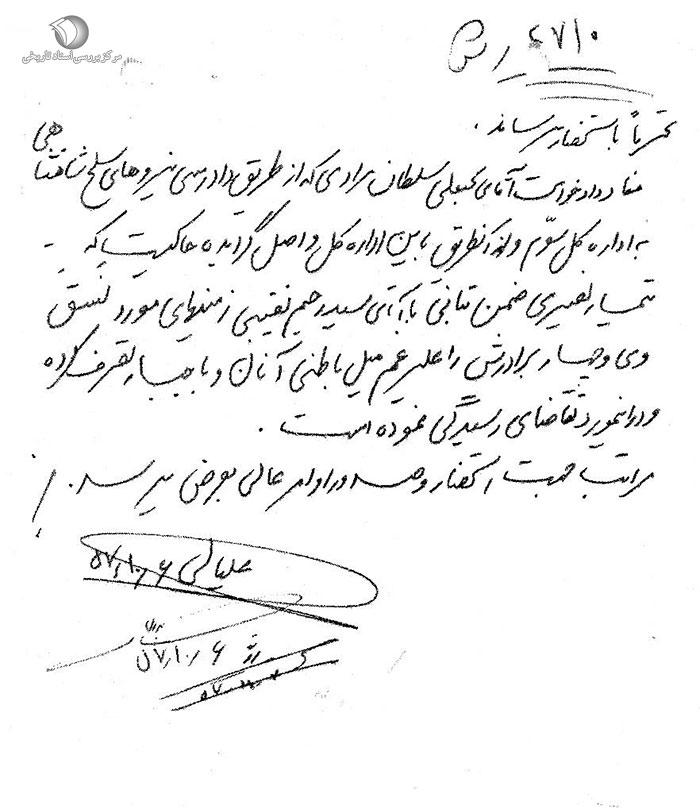 مرکز بررسی اسناد تاریخی
محترماً باستحضار میرساند.
مفاد دادخواست آقای سلطان مرادی که از طریق دادرسی نیروهای مسلح شاهنشاهی
به اداره کل سوم و از آنطریق باین اداره کل واصل گردیده حاکیست که
تیمسار نصیری ضمن تبانی با آقای سید رحیم نقیبی زمینهای مورد نسق
وی و چهار برادرش را علیرغم میل باطنی آنان و با اجبار تصرف کرده
و در اینمورد تقاضای رسیدگی نموده است.
مراتب جهت استحضار و صدور اوامر عالی بعرض میرسد.
۵۷/۱۰/۶
۵۷/۱۰/۶